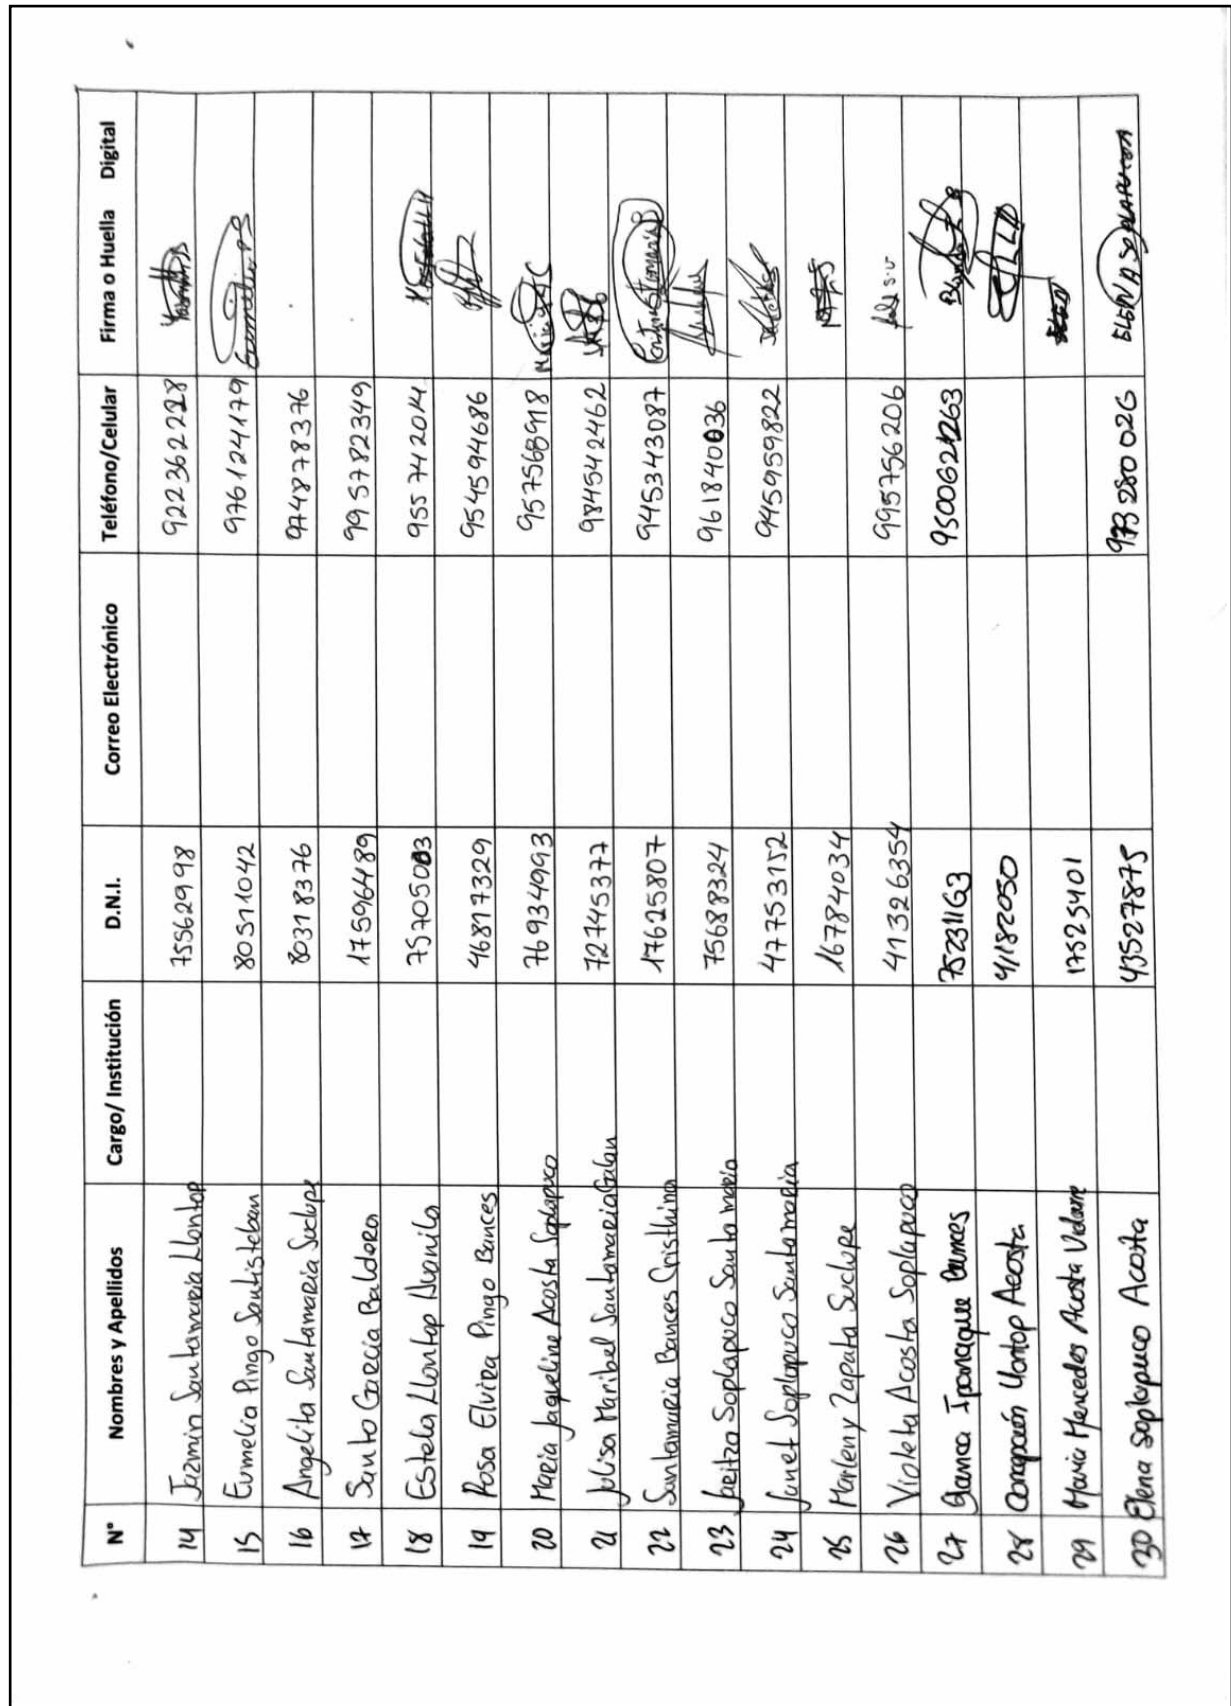 N° Nombres y Apellidos Cargo/ Institución D.N.I. Correo Electrónico Teléfono/Celular Firma o Huella Digital
14 Jazmin Santamaria Llontop 75562998 922362228
15 Eumelia Pingo Santisteban 80371042 976124179
16 Angelita Santamaria Suclupe 80378376 974878376
17 Santo Garcia Baldera 17596489 995782349
18 Estela Llontop Juanila 75705003 955742014
19 Rosa Elvira Pingo Bances 46817329 954594686
20 Maria Jaqueline Acosta Soplapuco 76934993 957568918
21 Julisa Maribel Santamaria Galan 72745377 984542462
22 Santamaria Bances Cristhina 17625807 945343087
23 Jaritza Soplapuco Santamaria 75688324 961840036
24 Janet Soplapuco Santamaria 47753152 945959822
25 Marleny Zapata Suclupe 16784034
26 Violeta Acosta Soplapuco 41326354 995756206
27 Blanca Ipanaque Bances 75231163
28 Llontop Acosta 41182050
29 Maria Mercedes Acosta Vidaurre 17525401
30 Elena Soplapuco Acosta 43527875 973280026 ELENA SOPLAPUCOA